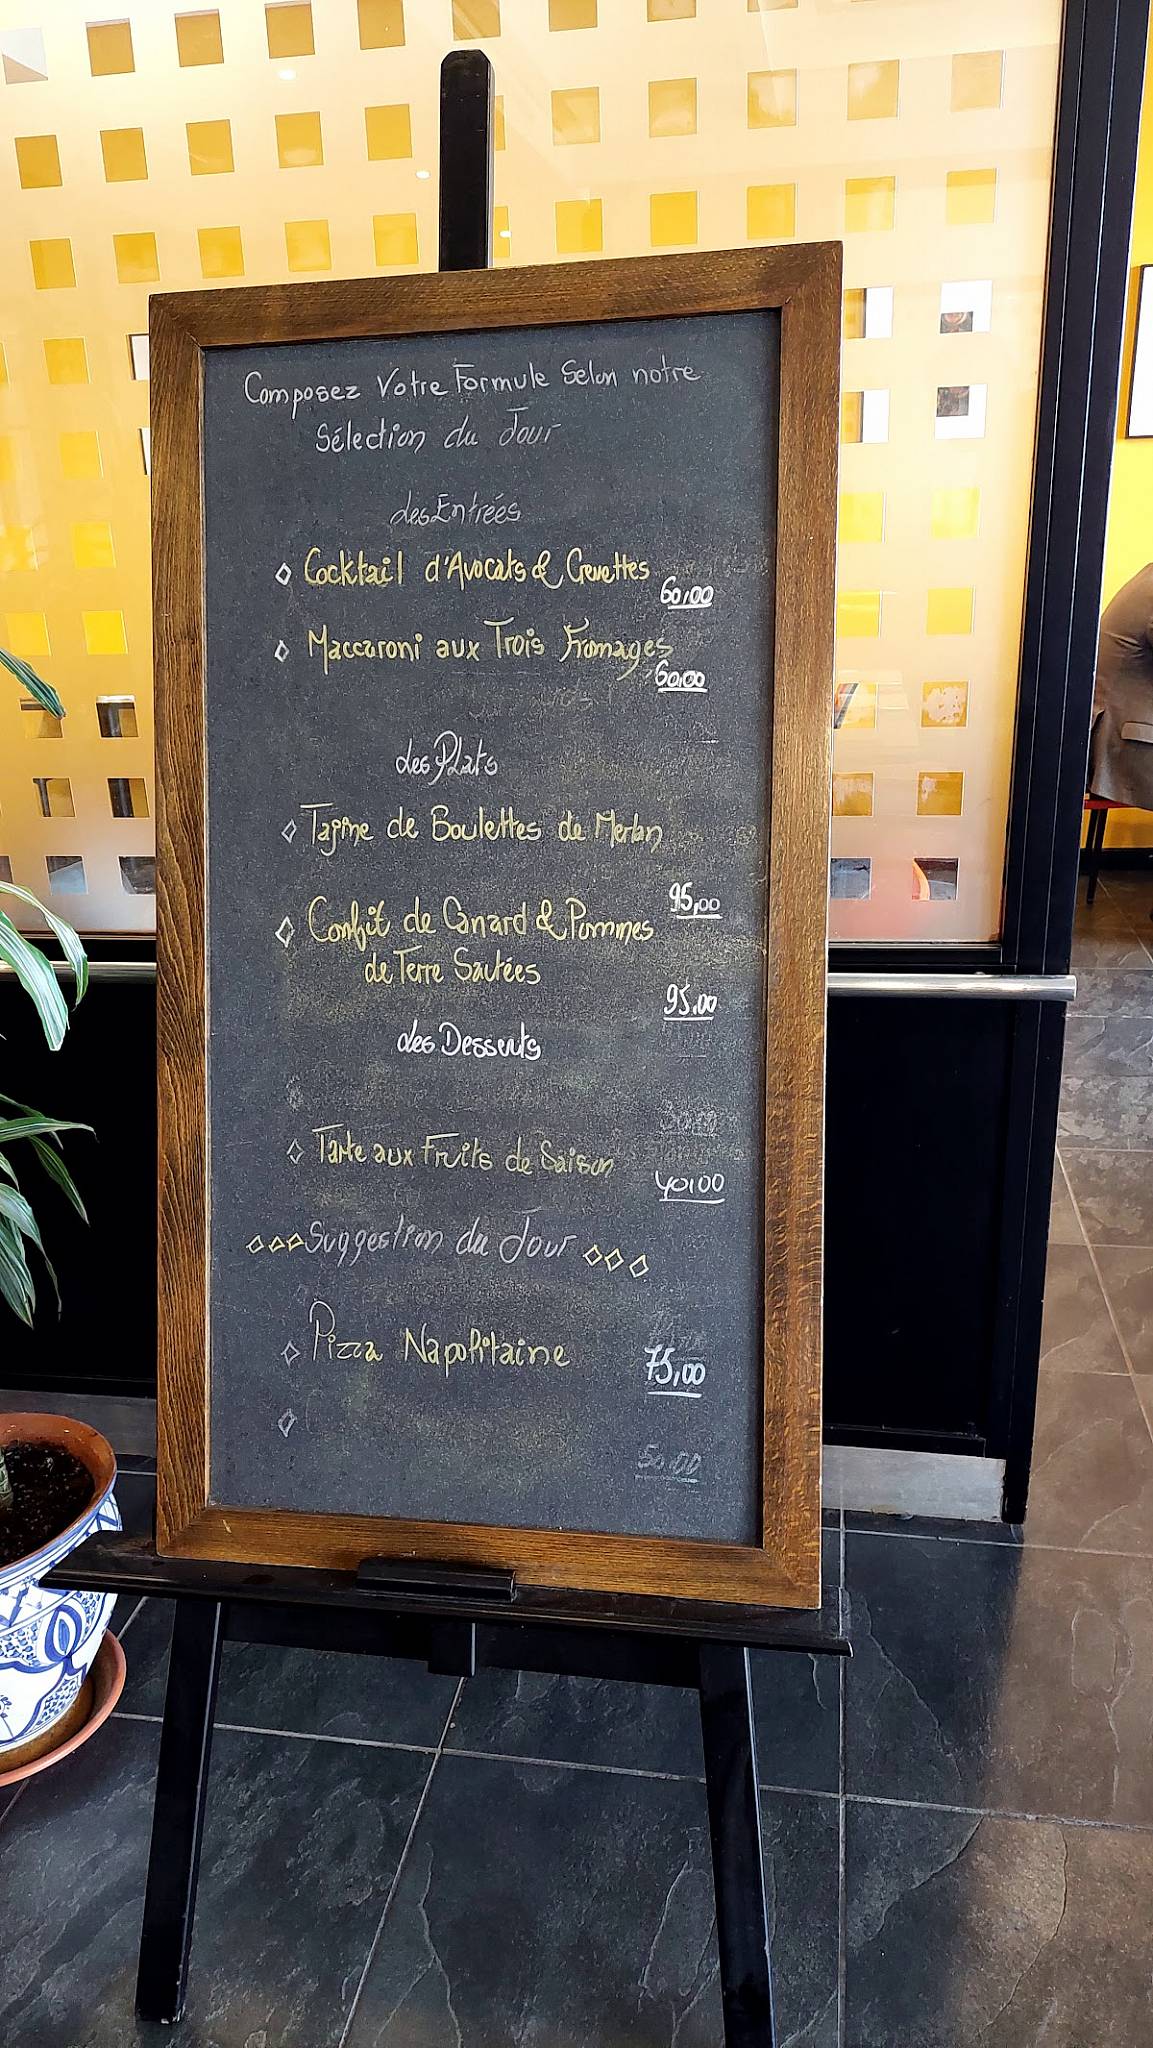 Composez Votre Formule Selon notre
Sélection du Jour
des Entrées
Cocktail d'Avocats & Crevettes
60,00
Maccaroni aux Trois Fromages
60,00
des Plats
Tajine de Boulettes de Merlan
95,00
Confit de Canard & Pommes
de Terre Sautées
95,00
des Desserts
Tarte aux Fruits de Saison
40,00
Suggestion du Jour
Pizza Napolitaine
75,00
50,00